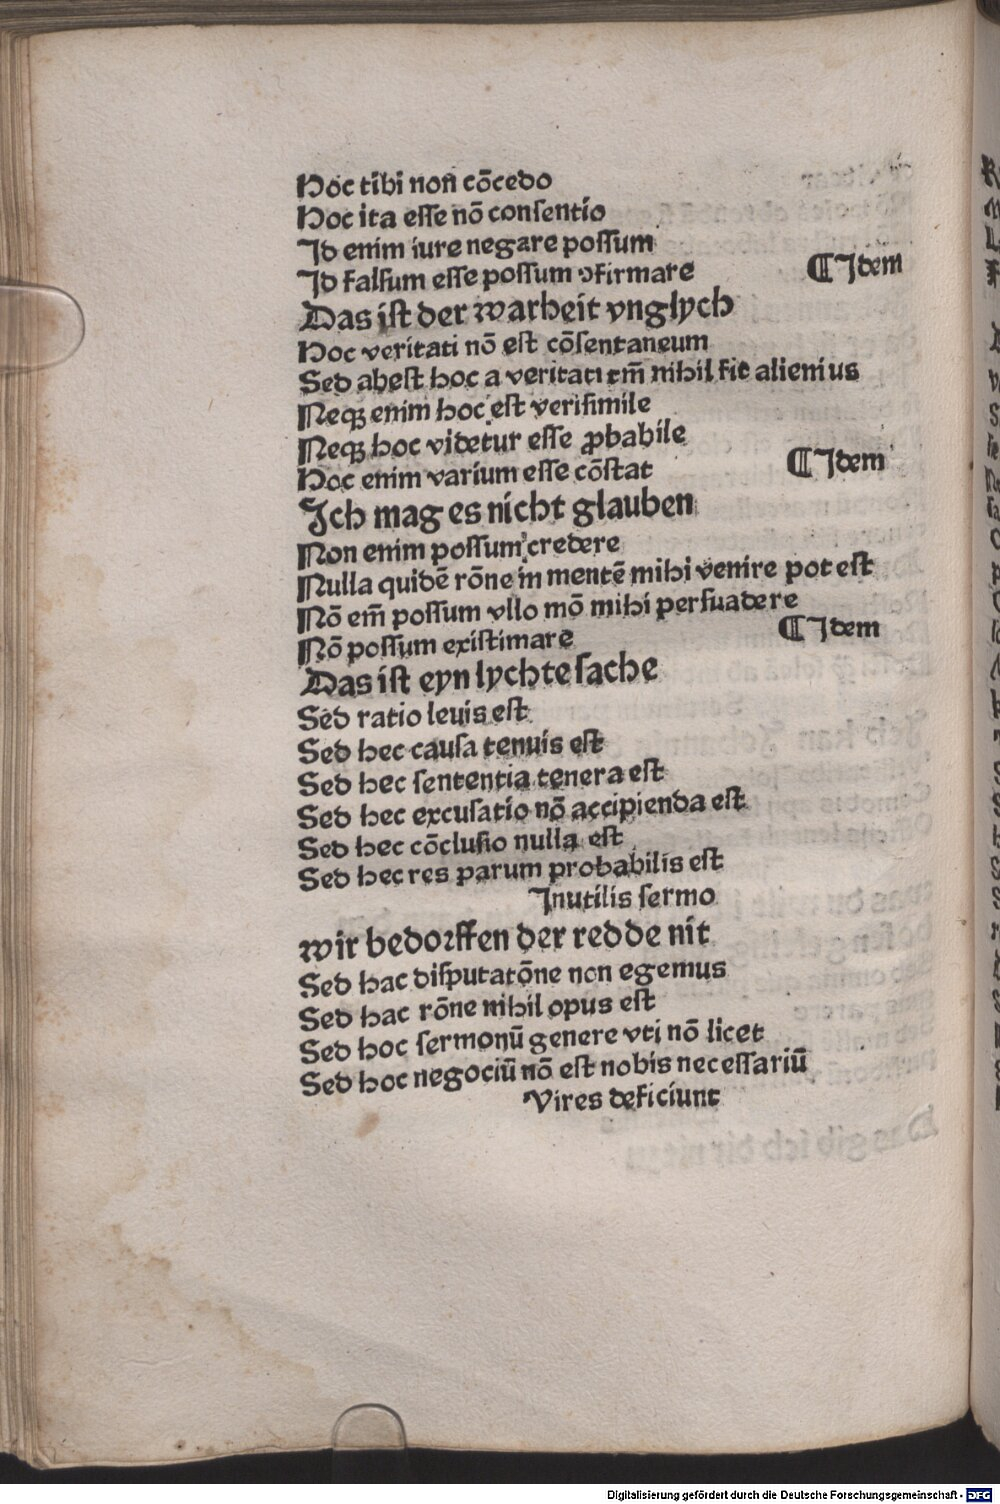 Hoc tibi non cõcedo
Hoc ita esse nõ consentio
Id enim iure negare possum
Id falsum esse possum ↄfirmare
¶ Idem
Das ist der warheit vnglych
Hoc veritati nõ est cõsentaneum
Sed abest hoc a veritati tm̃ nihil fit alienius
Neqꝫ enim hoc est verisimile
Neqꝫ hoc videtur esse ꝓbabile
Hoc enim varium esse cõstat
¶ Idem
Ich mag es nicht glauben
Non enim possum credere
Nulla quidẽ rõne in mentẽ mihi venire potest
Nõ em̃ possum vllo mõ mihi persuadere
Nõ possum existimare
¶ Idem
Das ist eyn lychte sache
Sed ratio leuis est
Sed hec causa tenuis est
Sed hec sententia tenera est
Sed hec excusatio nõ accipienda est
Sed hec cõclusio nulla est
Sed hec res parum probabilis est
Inutilis sermo
wir bedorffen der redde nit
Sed hac disputatõne non egemus
Sed hac rõne nihil opus est
Sed hoc sermonũ genere vti nõ licet
Sed hoc negociũ nõ est nobis necessariũ
Vires deficiunt
Digitalisierung gefördert durch die Deutsche Forschungsgemeinschaft - DFG